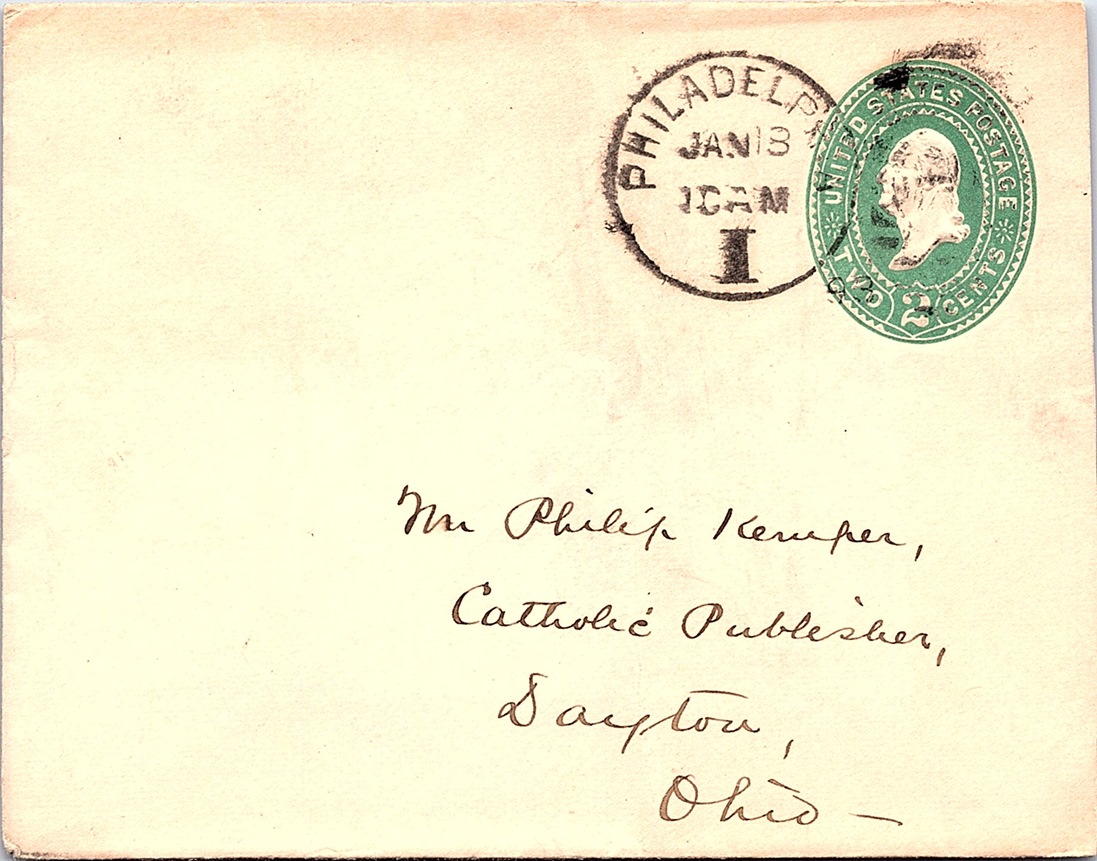 PHILADELP
JAN 18
10 AM
I
UNITED STATES POSTAGE
TWO 2 CENTS
Mr Philip Kemper,
Catholic Publisher,
Dayton,
Ohio —